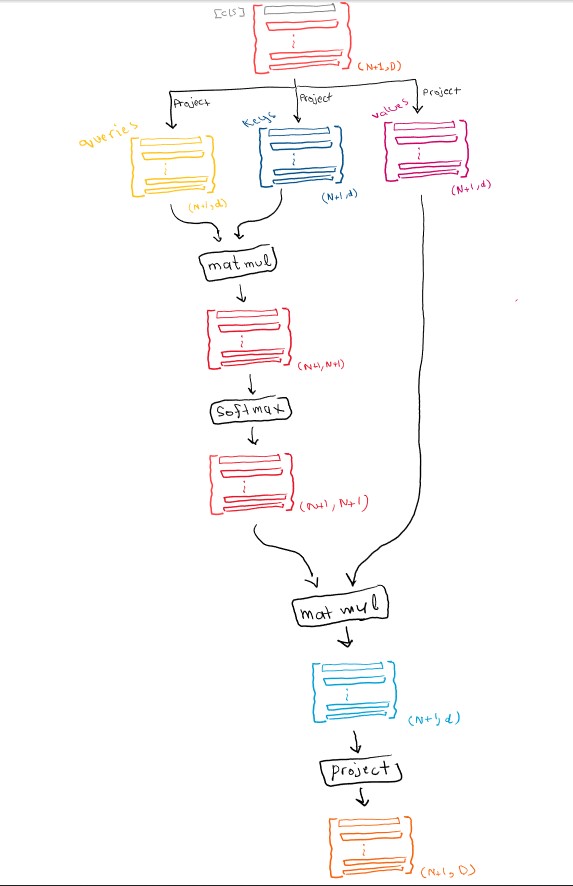 [cls]
(N+1, D)
Project
Project
Project
queries
keys
values
(N+1, d)
(N+1, d)
(N+1, d)
matmul
(N+1, N+1)
softmax
(N+1, N+1)
matmul
(N+1, d)
project
(N+1, D)